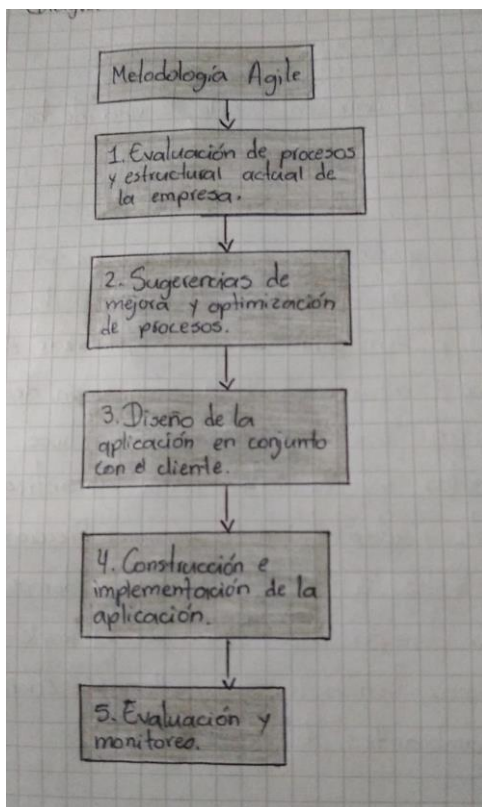 Metodología Agile
1. Evaluación de procesos
y estructural actual de
la empresa.
2. Sugerencias de
mejora y optimización
de procesos.
3. Diseño de la
aplicación en conjunto
con el cliente.
4. Construcción e
implementación de la
aplicación.
5. Evaluación y
monitoreo.